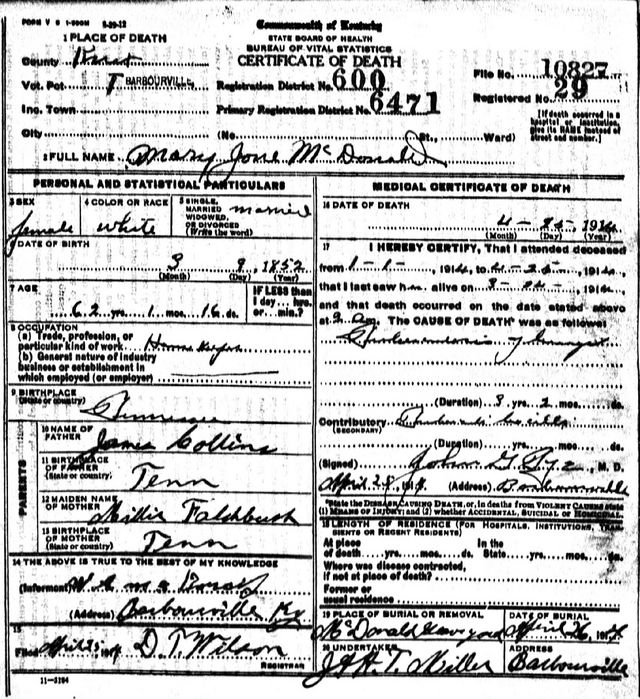 FORM V S 1-500M 5-29-12
Commonwealth of Kentucky
STATE BOARD OF HEALTH
BUREAU OF VITAL STATISTICS
CERTIFICATE OF DEATH
1 PLACE OF DEATH
County Knox
Vot. Pct T BARBOURVILLE Registration District No. 600 File No. 10827
Inc. Town Primary Registration District No. 6471 Registered No. 29
City (No. St., Ward) [If death occurred in a hospital or institution, give its NAME instead of street and number.]
2 FULL NAME Mary Jane McDonald
PERSONAL AND STATISTICAL PARTICULARS
3 SEX female
4 COLOR OR RACE white
5 SINGLE, MARRIED WIDOWED, OR DIVORCED (Write the word) married
6 DATE OF BIRTH
3 9, 1852
(Month) (Day) (Year)
7 AGE
62 yrs. 1 mos. 16 ds.
IF LESS than 1 day... hrs. or... min.?
8 OCCUPATION
(a) Trade, profession, or particular kind of work House Keeper
(b) General nature of industry business or establishment in which employed (or employer)
9 BIRTHPLACE
(State or country) Tennessee
PARENTS
10 NAME OF FATHER James Collins
11 BIRTHPLACE OF FATHER (State or country) Tenn
12 MAIDEN NAME OF MOTHER Millie
13 BIRTHPLACE OF MOTHER (State or country) Tenn
14 THE ABOVE IS TRUE TO THE BEST OF MY KNOWLEDGE
(Informant)
(Address) Barbourville Ky
15
Filed April 1914 D. T. Wilson
REGISTRAR
11-3184
MEDICAL CERTIFICATE OF DEATH
16 DATE OF DEATH
4-25-, 1914
(Month) (Day) (Year)
17 I HEREBY CERTIFY, That I attended deceased
from 1-1-, 1914, to 4-25-, 1914,
that I last saw h alive on 3-24-, 1914,
and that death occurred on the date stated above
at 3 am. The CAUSE OF DEATH* was as follows:
(Duration) 3 yrs. 2 mos. ds.
Contributory
(SECONDARY)
(Duration) yrs. mos. ds.
(Signed) John G. , M. D.
April 28, 1914 (Address) Barbourville
*State the DISEASE CAUSING DEATH, or, in deaths from VIOLENT CAUSES state (1) MEANS OF INJURY; and (2) whether ACCIDENTAL, SUICIDAL or HOMICIDAL.
18 LENGTH OF RESIDENCE (FOR HOSPITALS, INSTITUTIONS, TRANSIENTS OR RECENT RESIDENTS)
At place of death yrs. mos. ds. In the State yrs. mos. ds.
Where was disease contracted, if not at place of death?
Former or usual residence
19 PLACE OF BURIAL OR REMOVAL
McDonald Graveyard
DATE OF BURIAL
April 26, 1914
20 UNDERTAKER
J & H. T. Miller
ADDRESS
Barbourville